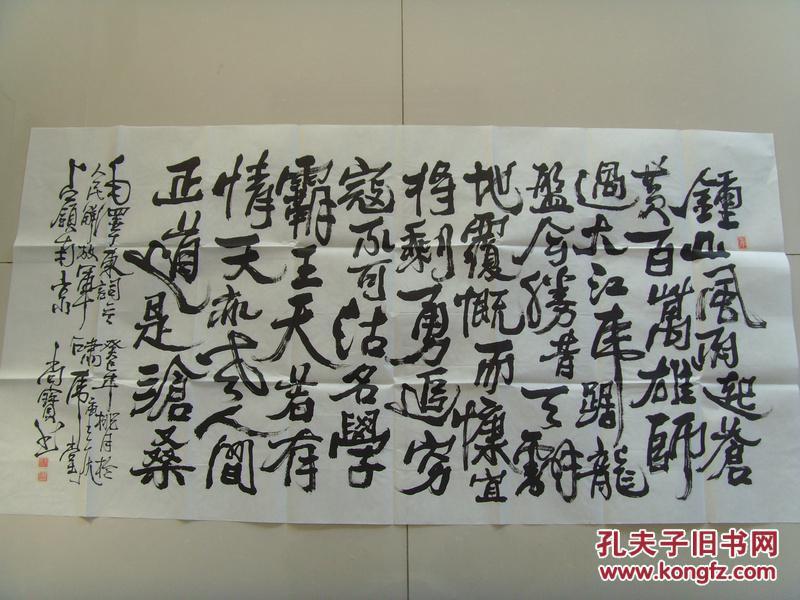 鍾山風雨起蒼
黄百萬雄師
過大江虎踞龍
盤今勝昔天翻
地覆慨而慷宜
将剩勇追穷
寇不可沽名學
霸王天若有
情天亦老人間
正道是滄桑
毛澤東詞
人民解放軍
占領南京
嘯虎堂
尚寶书
孔夫子旧书网
www.kongfz.com